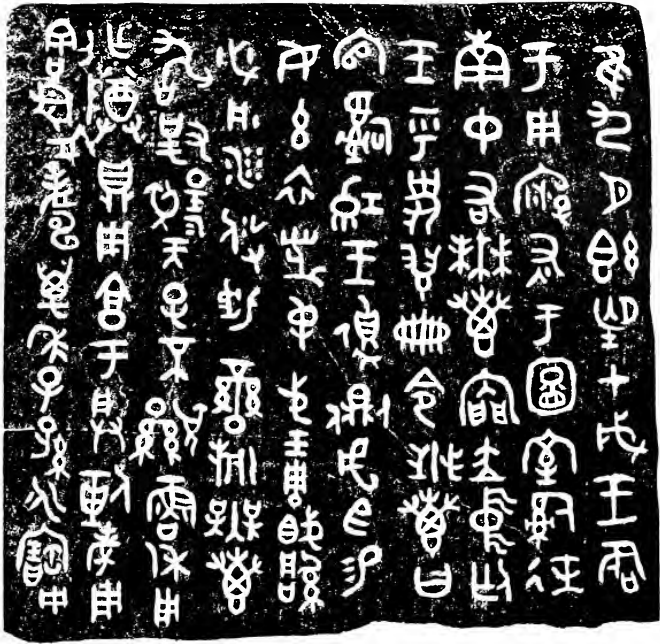 隹九月既望甲戌王各
于周廟述于圖室嗣徒
南中右無叀內門立中廷
王乎史翏冊令無叀曰
官嗣紅王遉側虎臣易
女玄衣黹屯戈琱胾縞
必彤沙攸勒䜌旂無叀
敢對揚天子不顯魯休用
乍尊鼎用享于朕剌考用
割眉壽萬年子孫永寶用